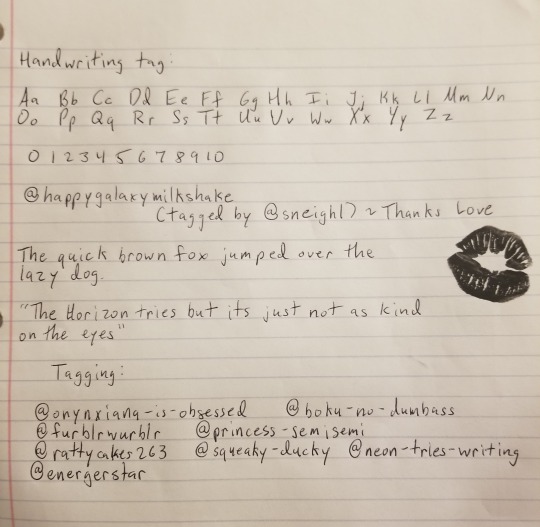 Handwriting tag:
Aa Bb Cc Dd Ee Ff Gg Hh Ii Jj Kk Ll Mm Nn
Oo Pp Qq Rr Ss Tt Uu Vv Ww Xx Yy Zz
0 1 2 3 4 5 6 7 8 9 10
@happygalaxymilkshake
(tagged by @sneighl) ~ Thanks Love
The quick brown fox jumped over the
lazy dog.
"The Horizon tries but its just not as kind
on the eyes"
Tagging:
@onynxiana-is-obsessed @boku-no-dumbass
@furblrwurblr @princess-semisemi
@rattycakes263 @squeaky-ducky @neon-tries-writing
@energerstar